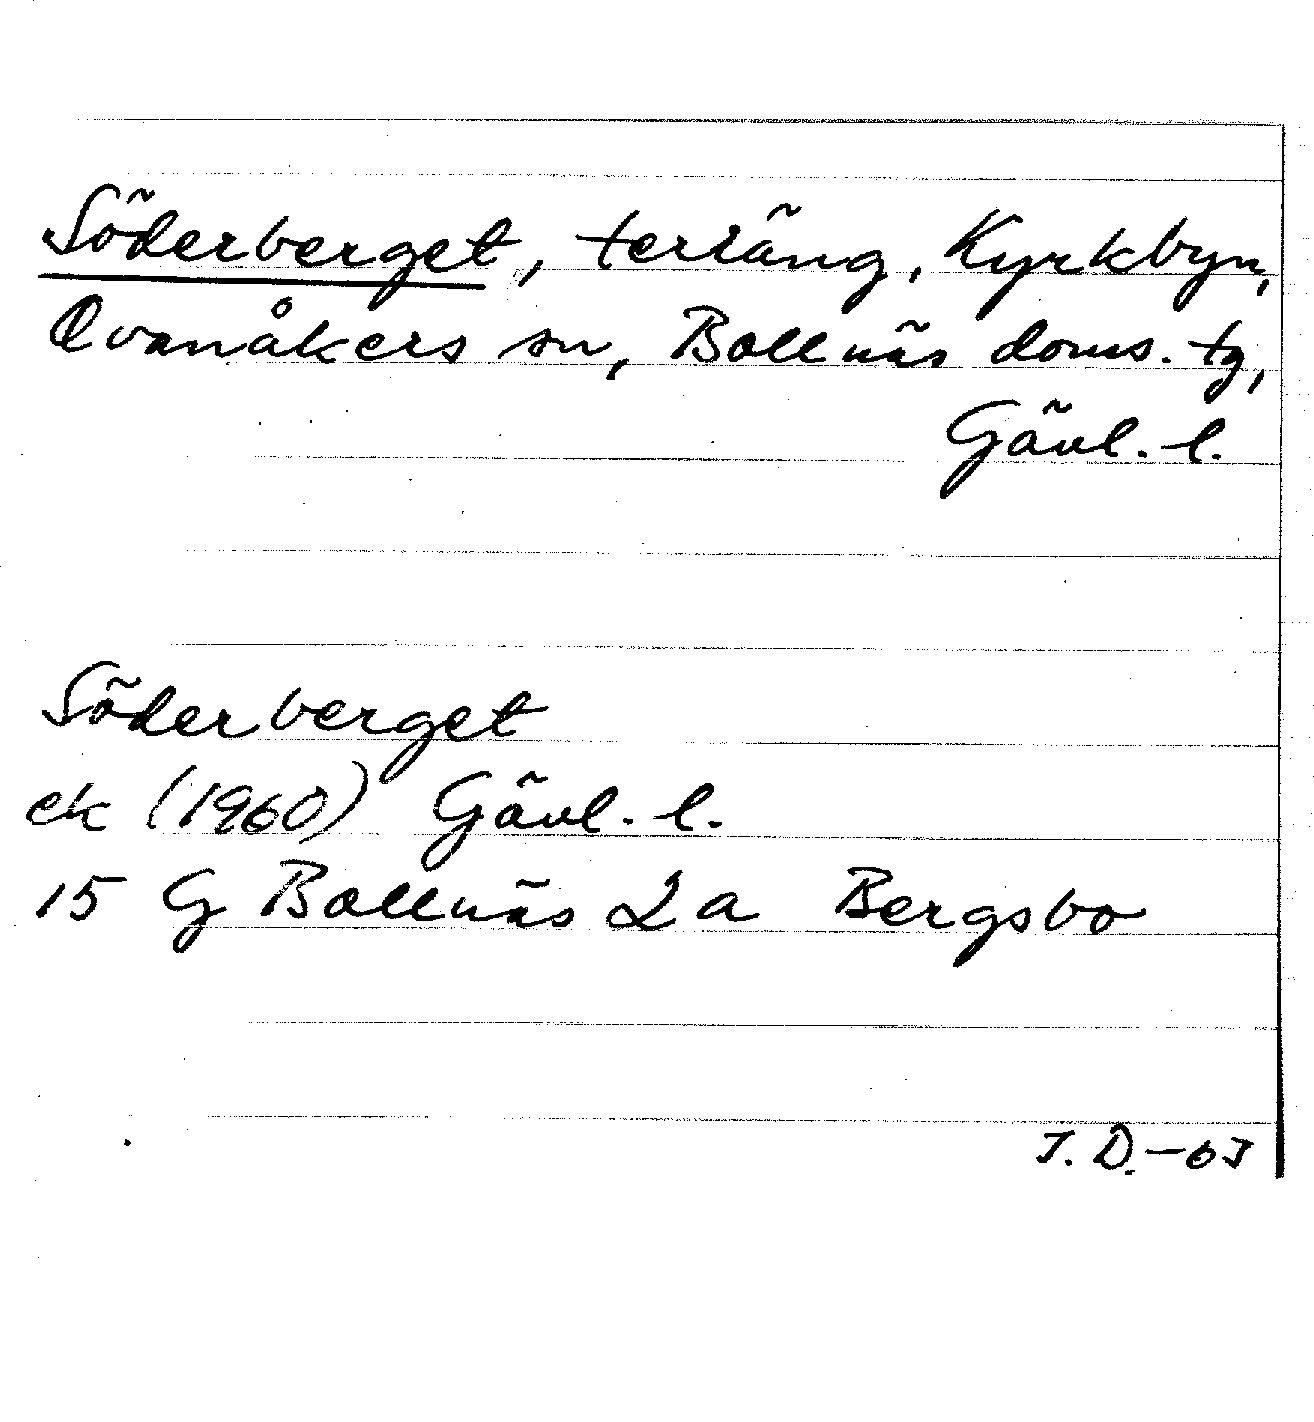 Söderberget, terräng, Kyrkbyn,
Ovanåkers sn, Bollnäs doms. tg,
Gävl. l.
Söderberget
ek (1960) Gävl. l.
15 G Bollnäs 2a Bergsbo